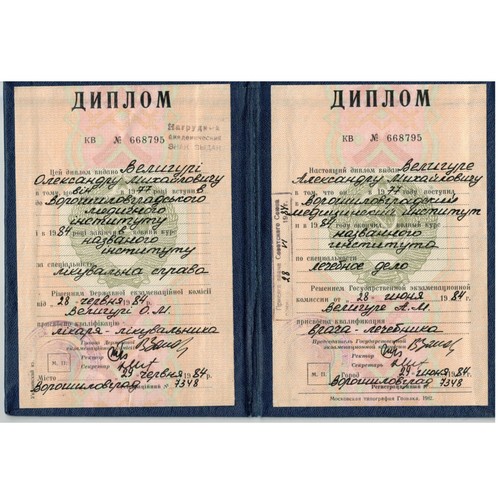 ДИПЛОМ
КВ № 668795
Нагрудный
академический
знак выдан
Цей диплом видано Велигурі
Олександру Михайловичу
в тому, що він у 1977 році вступив
в
Ворошиловградського
медичного
інституту
і в 1984 році закінчив повний курс
названого
інституту
за спеціальністю
лікувальна справа
Рішенням Державної екзаменаційної комісії
від 28 червня 1984 р.
Велигурі О.М.
присвоєно кваліфікацію
лікаря-лікувальника
Голова Державної
екзаменаційної комісії
Ректор
Секретар
М. П.
Місто 29 червня 1984 р.
Ворошиловград
Реєстраційний № 7348
ДИПЛОМ
КВ № 668795
Настоящий диплом выдан Велигуре
Александру Михайловичу
в том, что он в 1977 году поступил
в
Ворошиловградский
медицинский институт
и в 1984 году окончил полный курс
названного
института
по специальности
лечебное дело
Решением Государственной экзаменационной
комиссии от 28 июня 1984 г.
Велигуре А.М.
присвоена квалификация
врача-лечебника
Председатель Государственной
экзаменационной комиссии
Ректор
Секретарь
М. П.
Город 29 июня 1984 г.
Ворошиловград
Регистрационный № 7348
Московская типография Гознака. 1982.